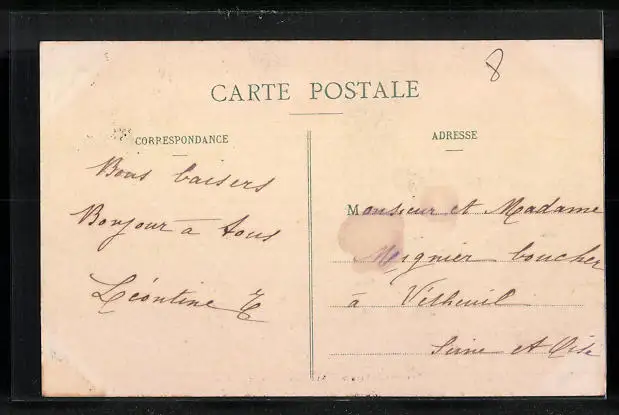 8
CARTE POSTALE
CORRESPONDANCE
ADRESSE
Bons baisers
Bonjour à tous
Léontine
Monsieur et Madame
boucher
à Vétheuil
Seine et Oise